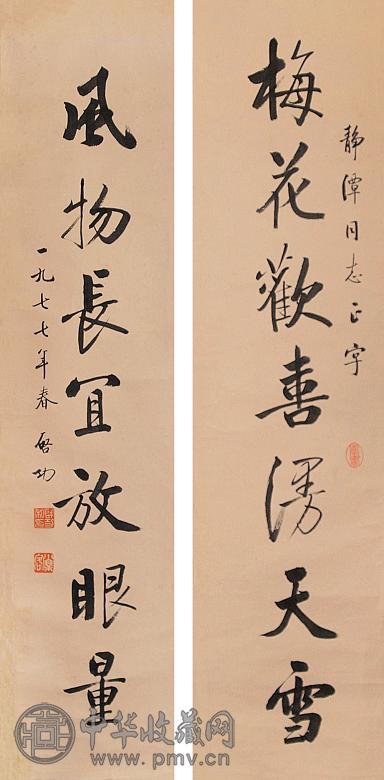 静潭同志正字
梅花歡喜漫天雪
風物長宜放眼量
一九七七年春 启功
中华收藏网
www.pmv.cn